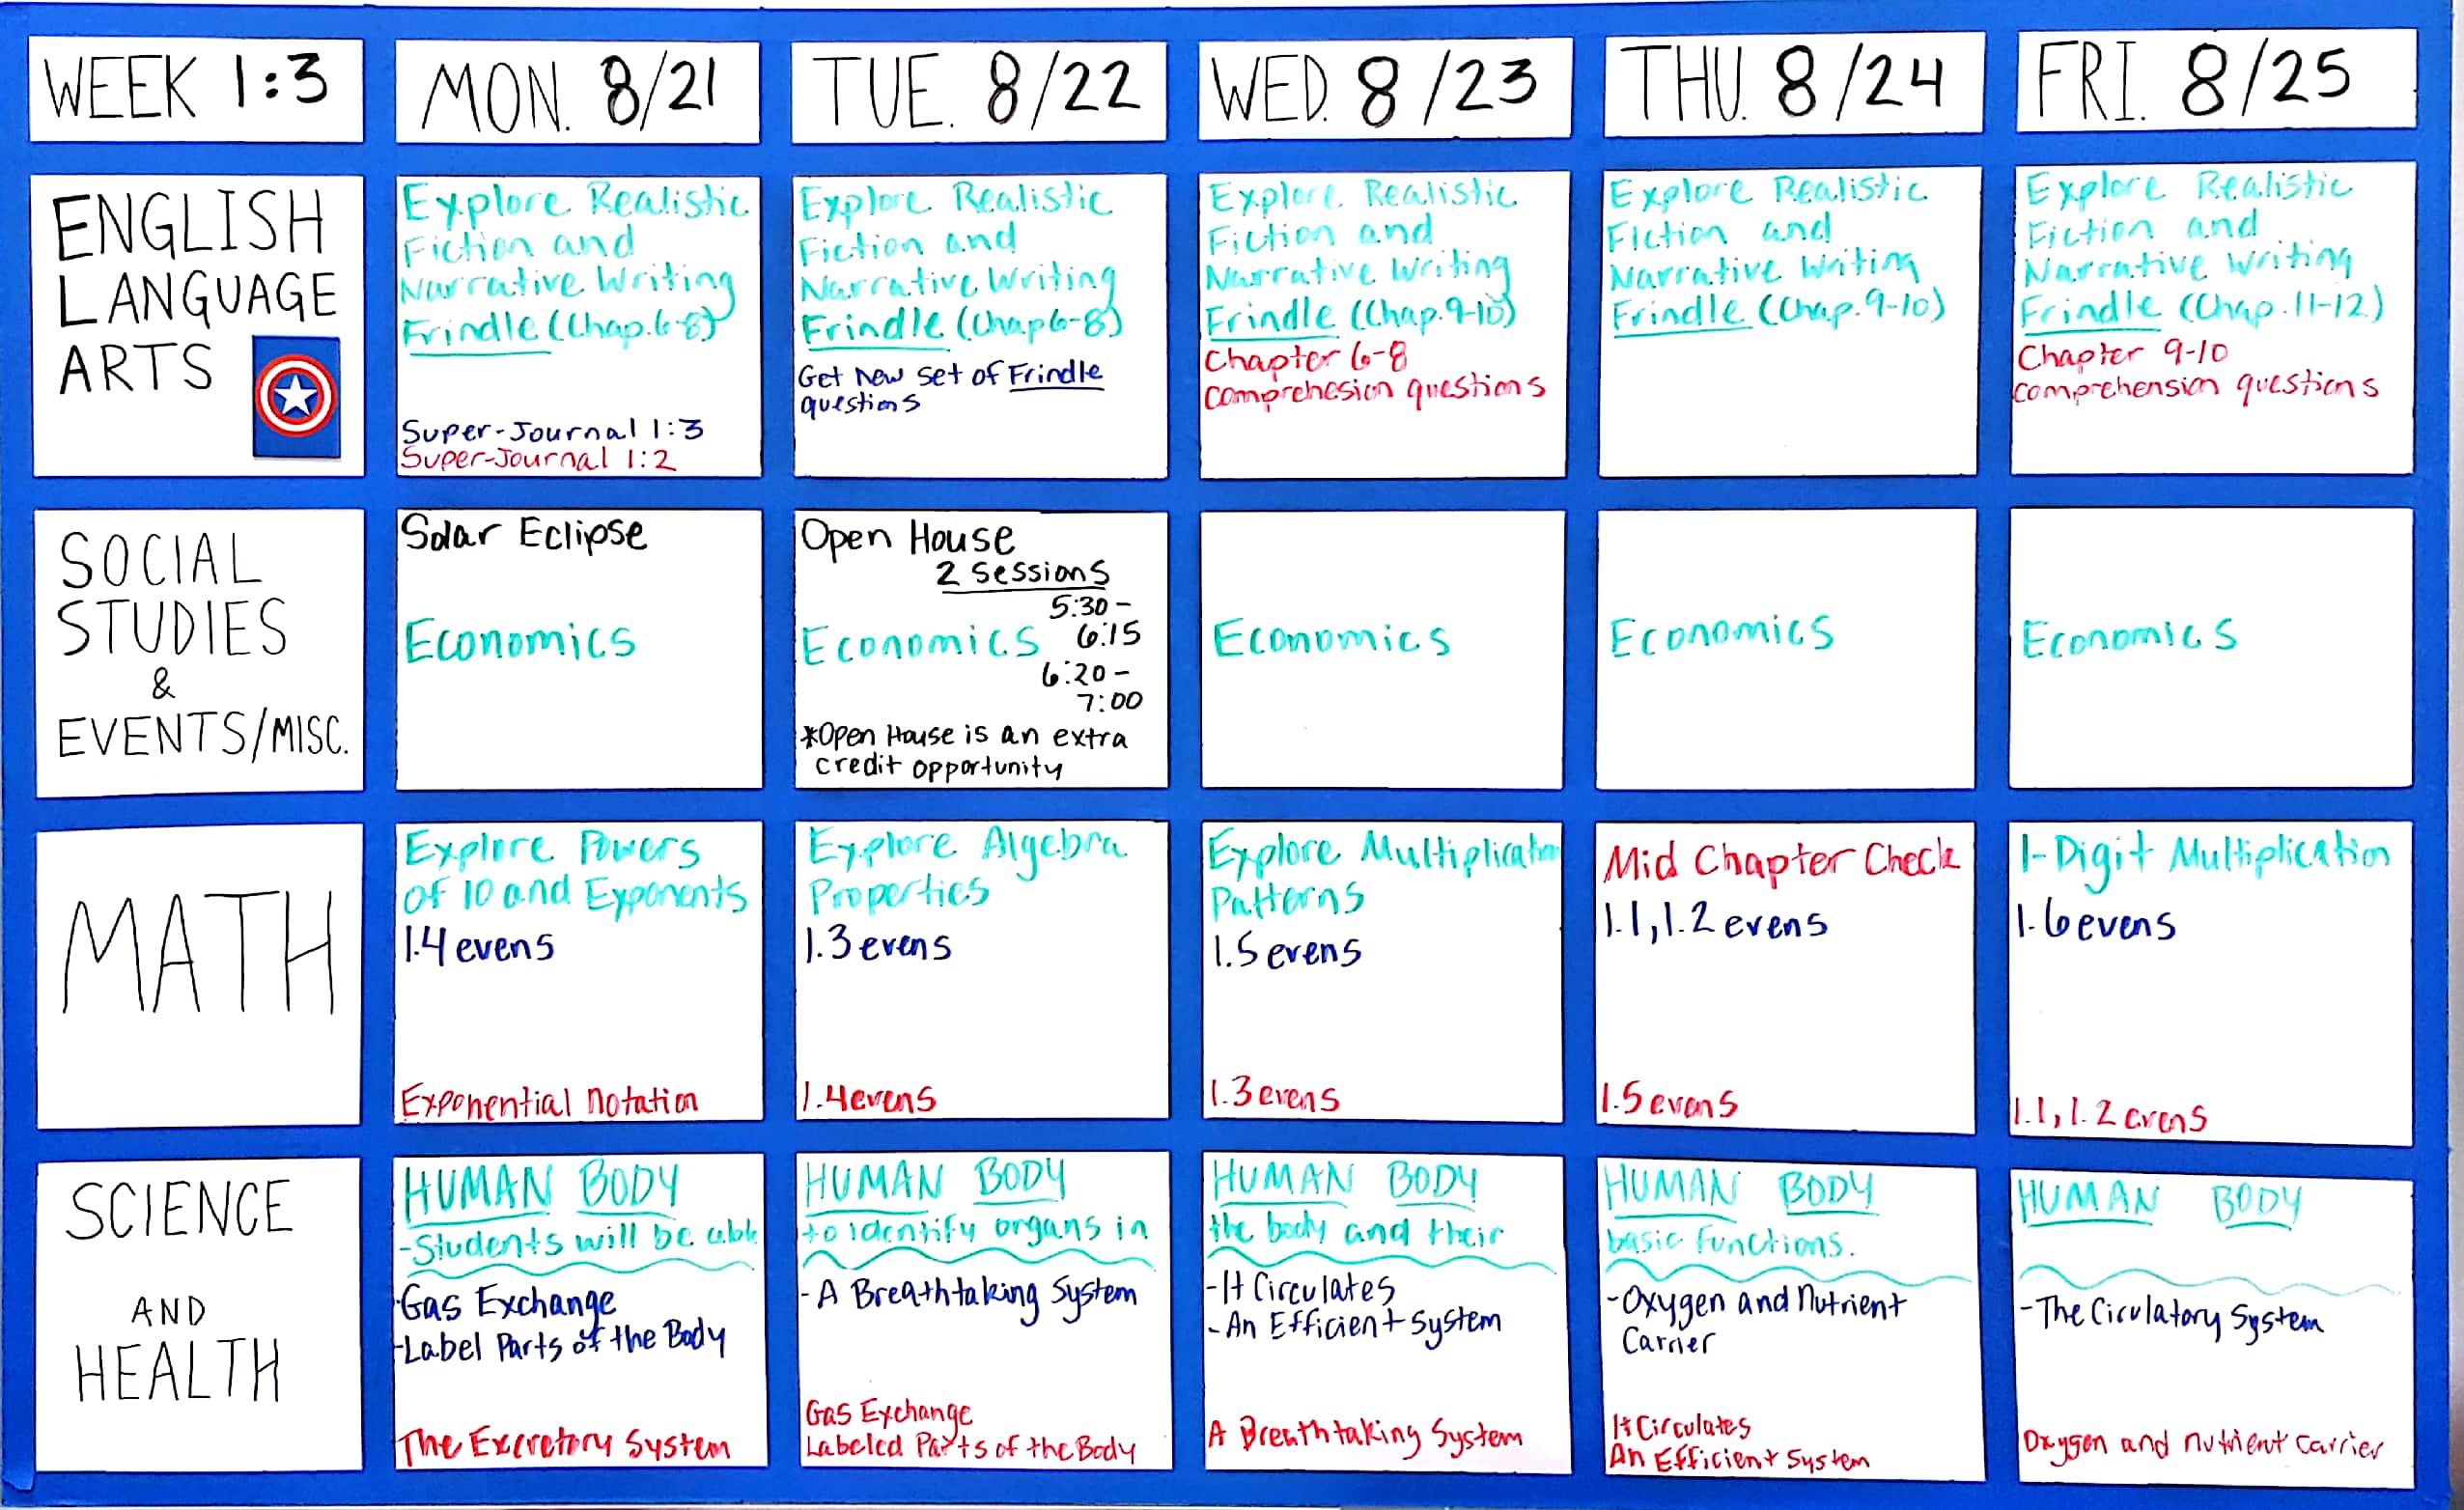 WEEK 1:3
MON. 8/21
TUE. 8/22
WED. 8/23
THU. 8/24
FRI. 8/25
ENGLISH
LANGUAGE
ARTS
Explore Realistic
Fiction and
Narrative Writing
Frindle (Chap.6-8)
Super-Journal 1:3
Super-Journal 1:2
Explore Realistic
Fiction and
Narrative Writing
Frindle (Chap6-8)
Get new set of Frindle
questions
Explore Realistic
Fiction and
Narrative Writing
Frindle (Chap.9-10)
Chapter 6-8
comprehesion questions
Explore Realistic
Fiction and
Narrative Writing
Frindle (Chap.9-10)
Explore Realistic
Fiction and
Narrative Writing
Frindle (Chap.11-12)
Chapter 9-10
comprehension questions
SOCIAL
STUDIES
&
EVENTS/MISC.
Solar Eclipse
Economics
Open House
2 Sessions
5:30-
Economics 6:15
6:20-
7:00
*Open House is an extra
credit opportunity
Economics
Economics
Economics
MATH
Explore Powers
of 10 and Exponents
1.4 evens
Exponential Notation
Explore Algebra
Properties
1.3 evens
1.4 evens
Explore Multiplication
Patterns
1.5 evens
1.3 evens
Mid Chapter Check
1.1, 1.2 evens
1.5 evens
1-Digit Multiplication
1.6 evens
1.1, 1.2 evens
SCIENCE
AND
HEALTH
HUMAN BODY
-Students will be able
-Gas Exchange
-Label Parts of the Body
The Excretory System
HUMAN BODY
to identify organs in
-A Breathtaking System
Gas Exchange
Labeled Parts of the Body
HUMAN BODY
the body and their
-It Circulates
-An Efficient System
A Breathtaking System
HUMAN BODY
basic functions.
-Oxygen and Nutrient
Carrier
It Circulates
An Efficient System
HUMAN BODY
-The Circulatory System
Oxygen and nutrient carrier